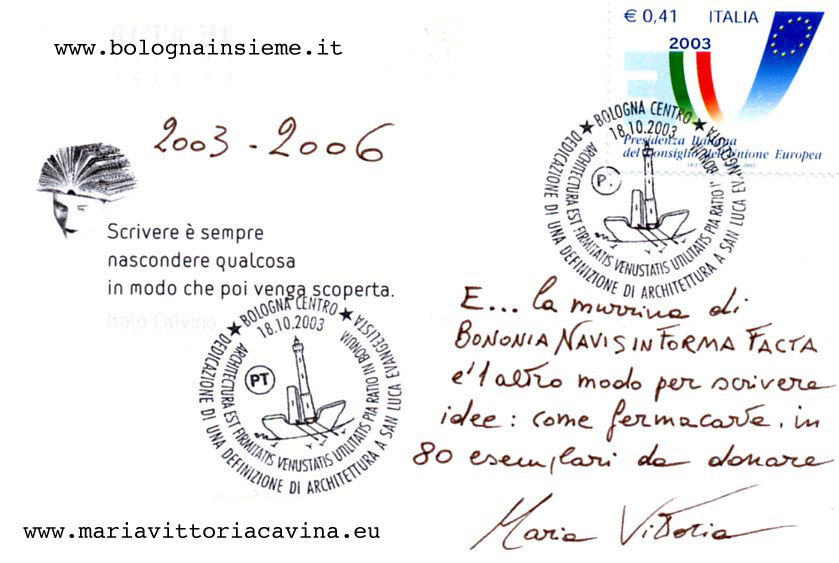 www.bolognainsieme.it
€ 0,41 ITALIA
2003
Presidenza Italiana
del Consiglio dell'Unione Europea
2003 - 2006
Scrivere è sempre
nascondere qualcosa
in modo che poi venga scoperta.
Italo Calvino
★ BOLOGNA CENTRO ★
18.10.2003
DEDICAZIONE DI UNA DEFINIZIONE DI ARCHITETTURA A SAN LUCA EVANGELISTA
ARCHITECTURA EST FIRMITATIS VENUSTATIS UTILITATIS PIA RATIO IN BONUM
P.
★ BOLOGNA CENTRO ★
18.10.2003
DEDICAZIONE DI UNA DEFINIZIONE DI ARCHITETTURA A SAN LUCA EVANGELISTA
ARCHITECTURA EST FIRMITATIS VENUSTATIS UTILITATIS PIA RATIO IN BONUM
PT
E... la murrina di
BONONIA NAVIS IN FORMA FACTA
è l'altro modo per scrivere
idee: come fermacarte, in
80 esemplari da donare
Maria Vittoria
www.mariavittoriacavina.eu